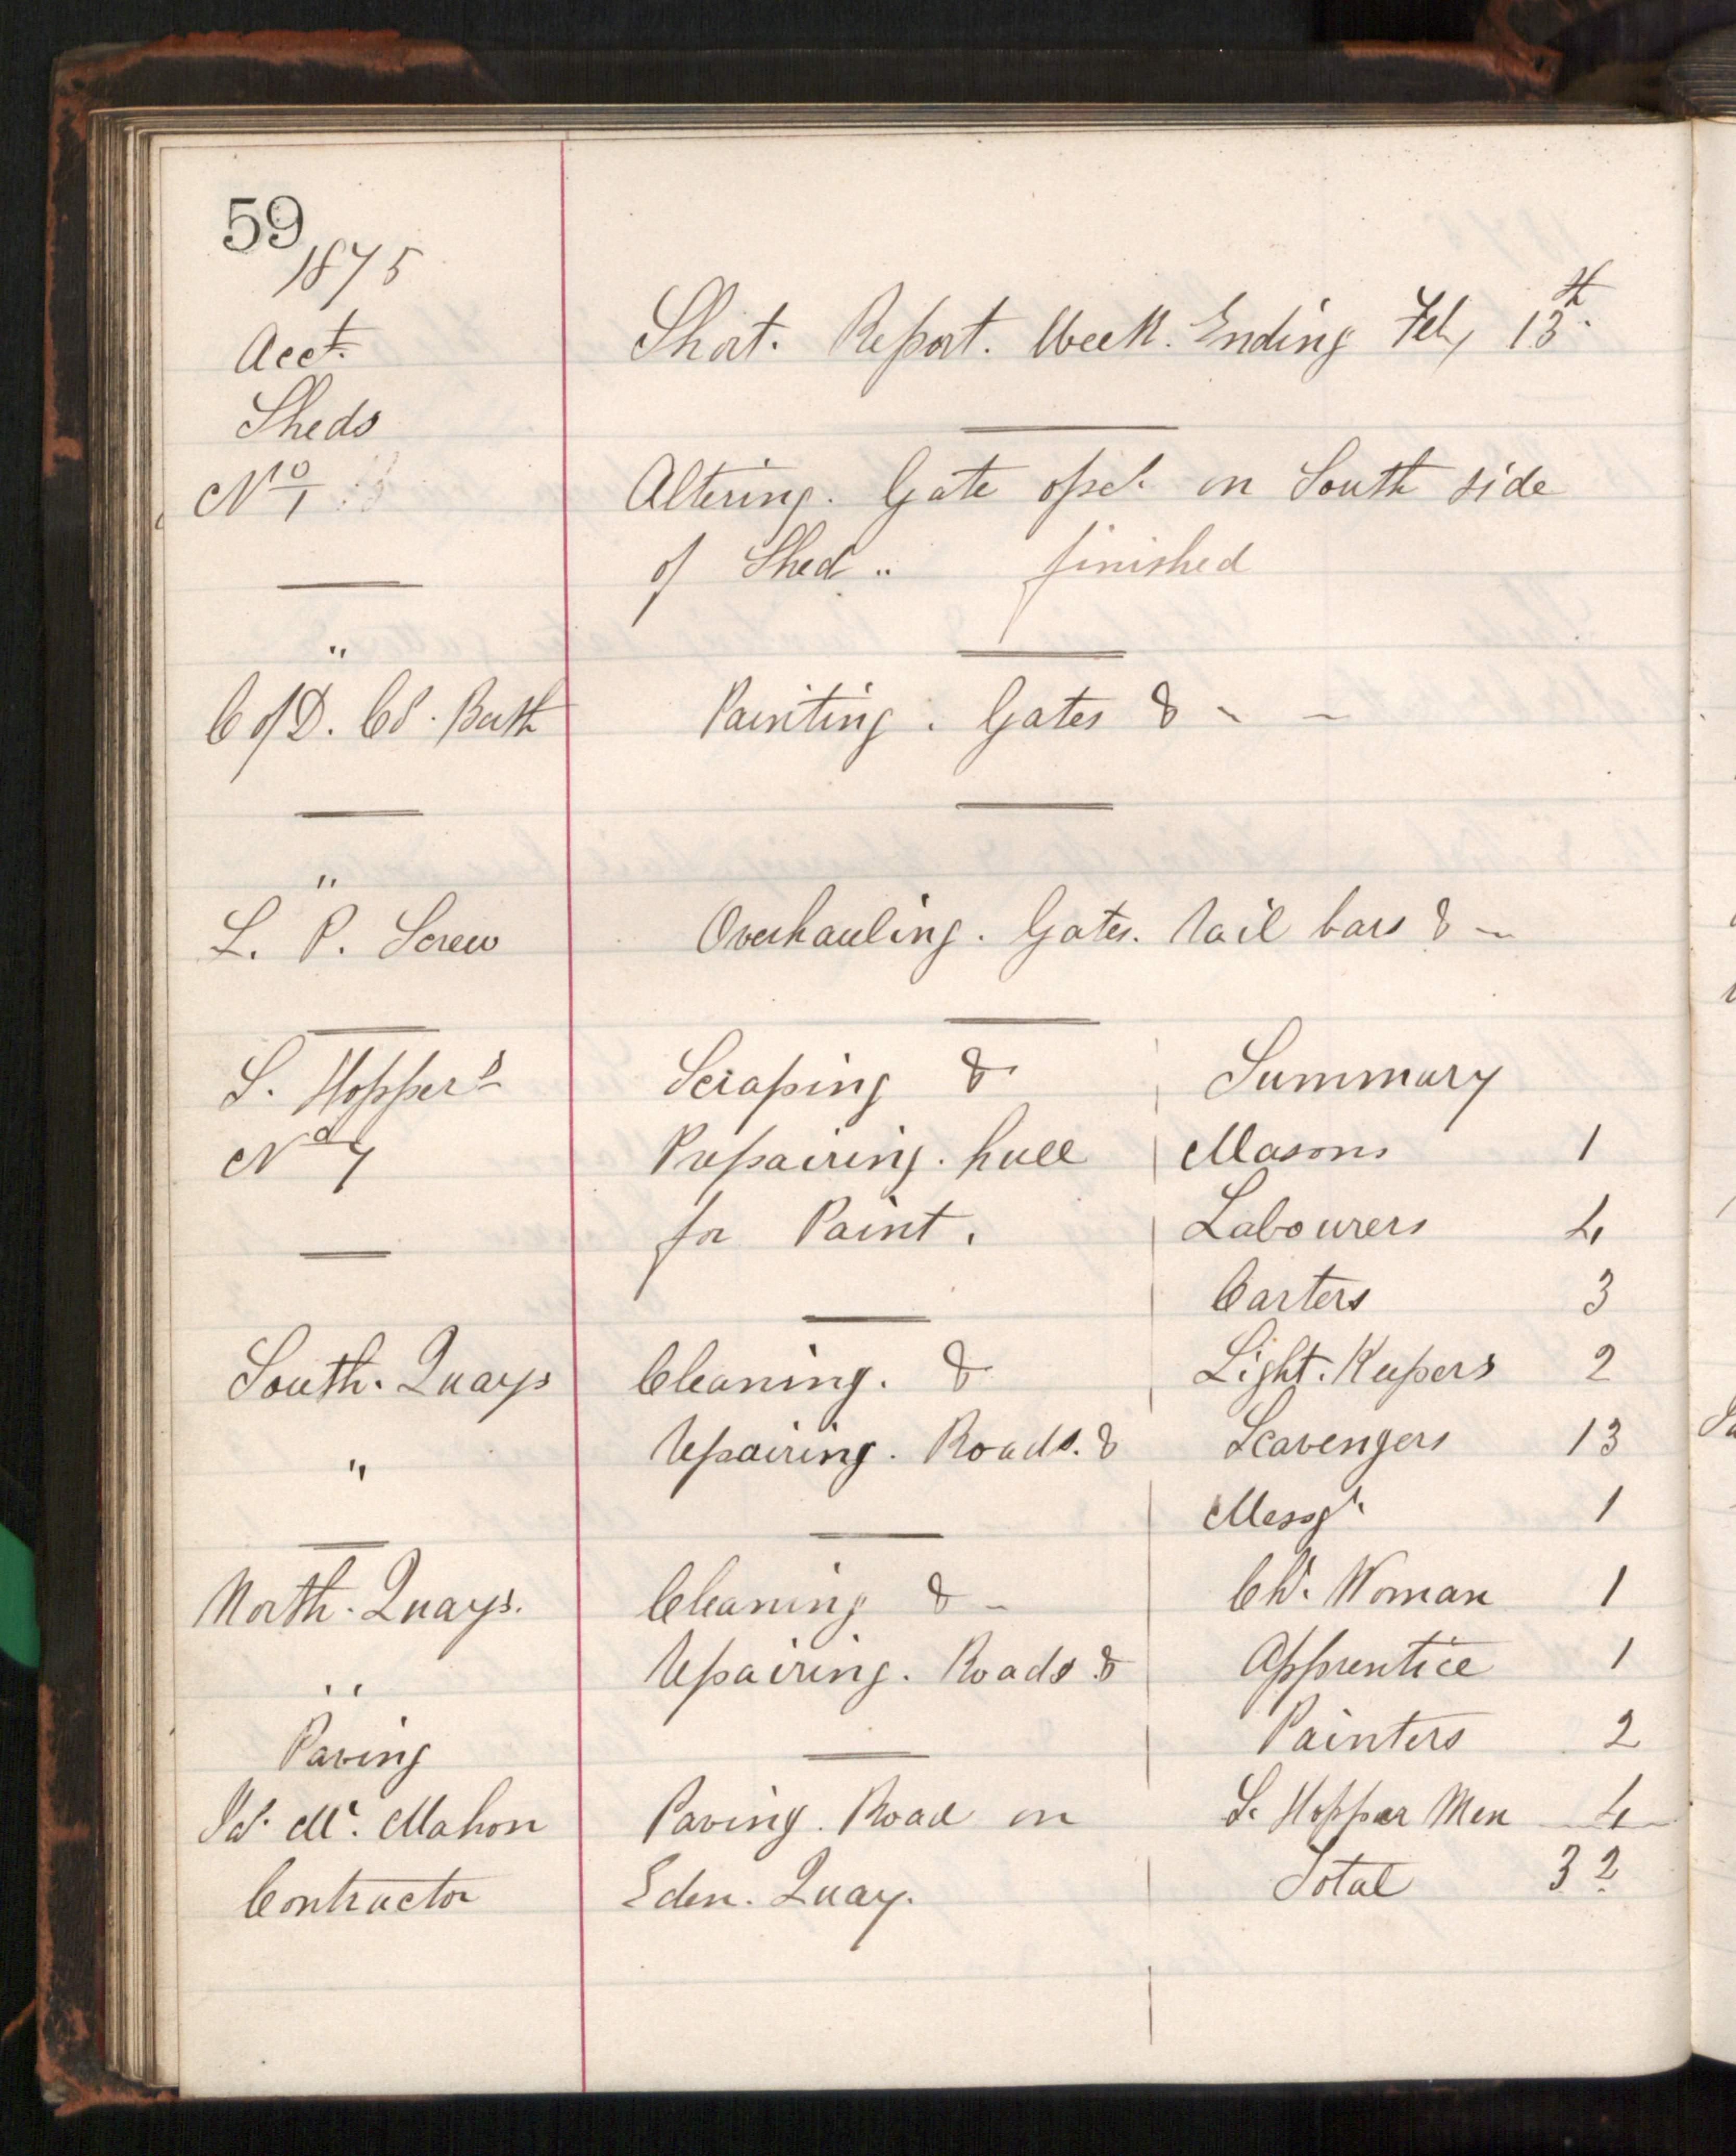 59
1875
Acct.
Short. Report. Week. Ending Feby 13th.
Sheds
No 1
Altering. Gate opeg. on South side
of Shed " finished
"
C of D. Co. Berth
Painting. Gates & - -
"
L. P. Screw
Overhauling. Gates. rail bars & -
S. Hoppers
No 7
Scraping &
Preparing. hull
for Paint.
South. Quays
Cleaning. &
"
Repairing. Roads. &
North. Quays.
Cleaning & -
"
Repairing. Roads &
Paving
Mc. Mahon
Contractor
Paving. Road on
Eden. Quay.
Summary
Masons 1
Labourers 4
Carters 3
Light. Keepers 2
Scavengers 13
Messgr. 1
Ch. Woman 1
Apprentice 1
Painters 2
S. Hopper Men 4
Total 32